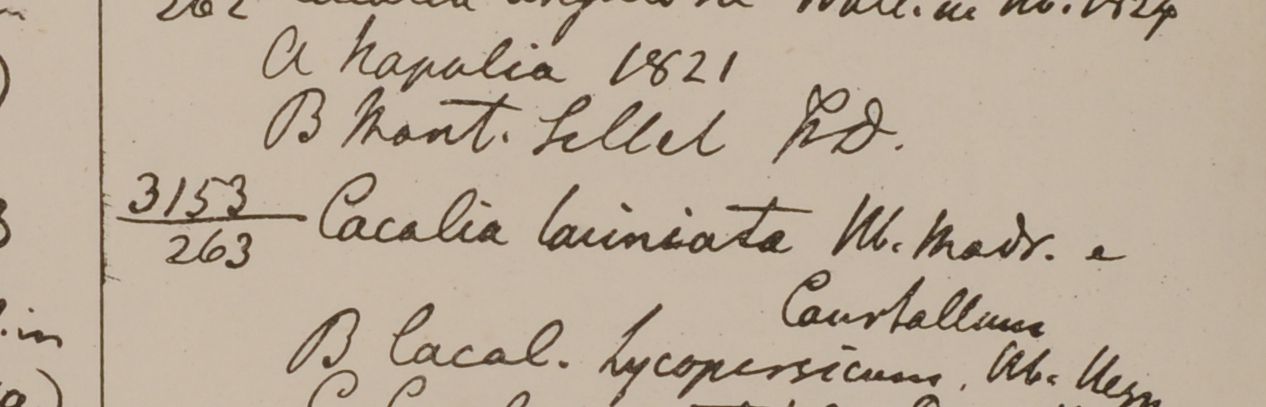 262 Wall. in Hb. 1824
A Napalia 1821
B Mont. Sillet F.D.
3153
263 Cacalia laciniata Hb. Madr. e
Courtallum
B Cacal. Lycopersicum, Hb. Heyn